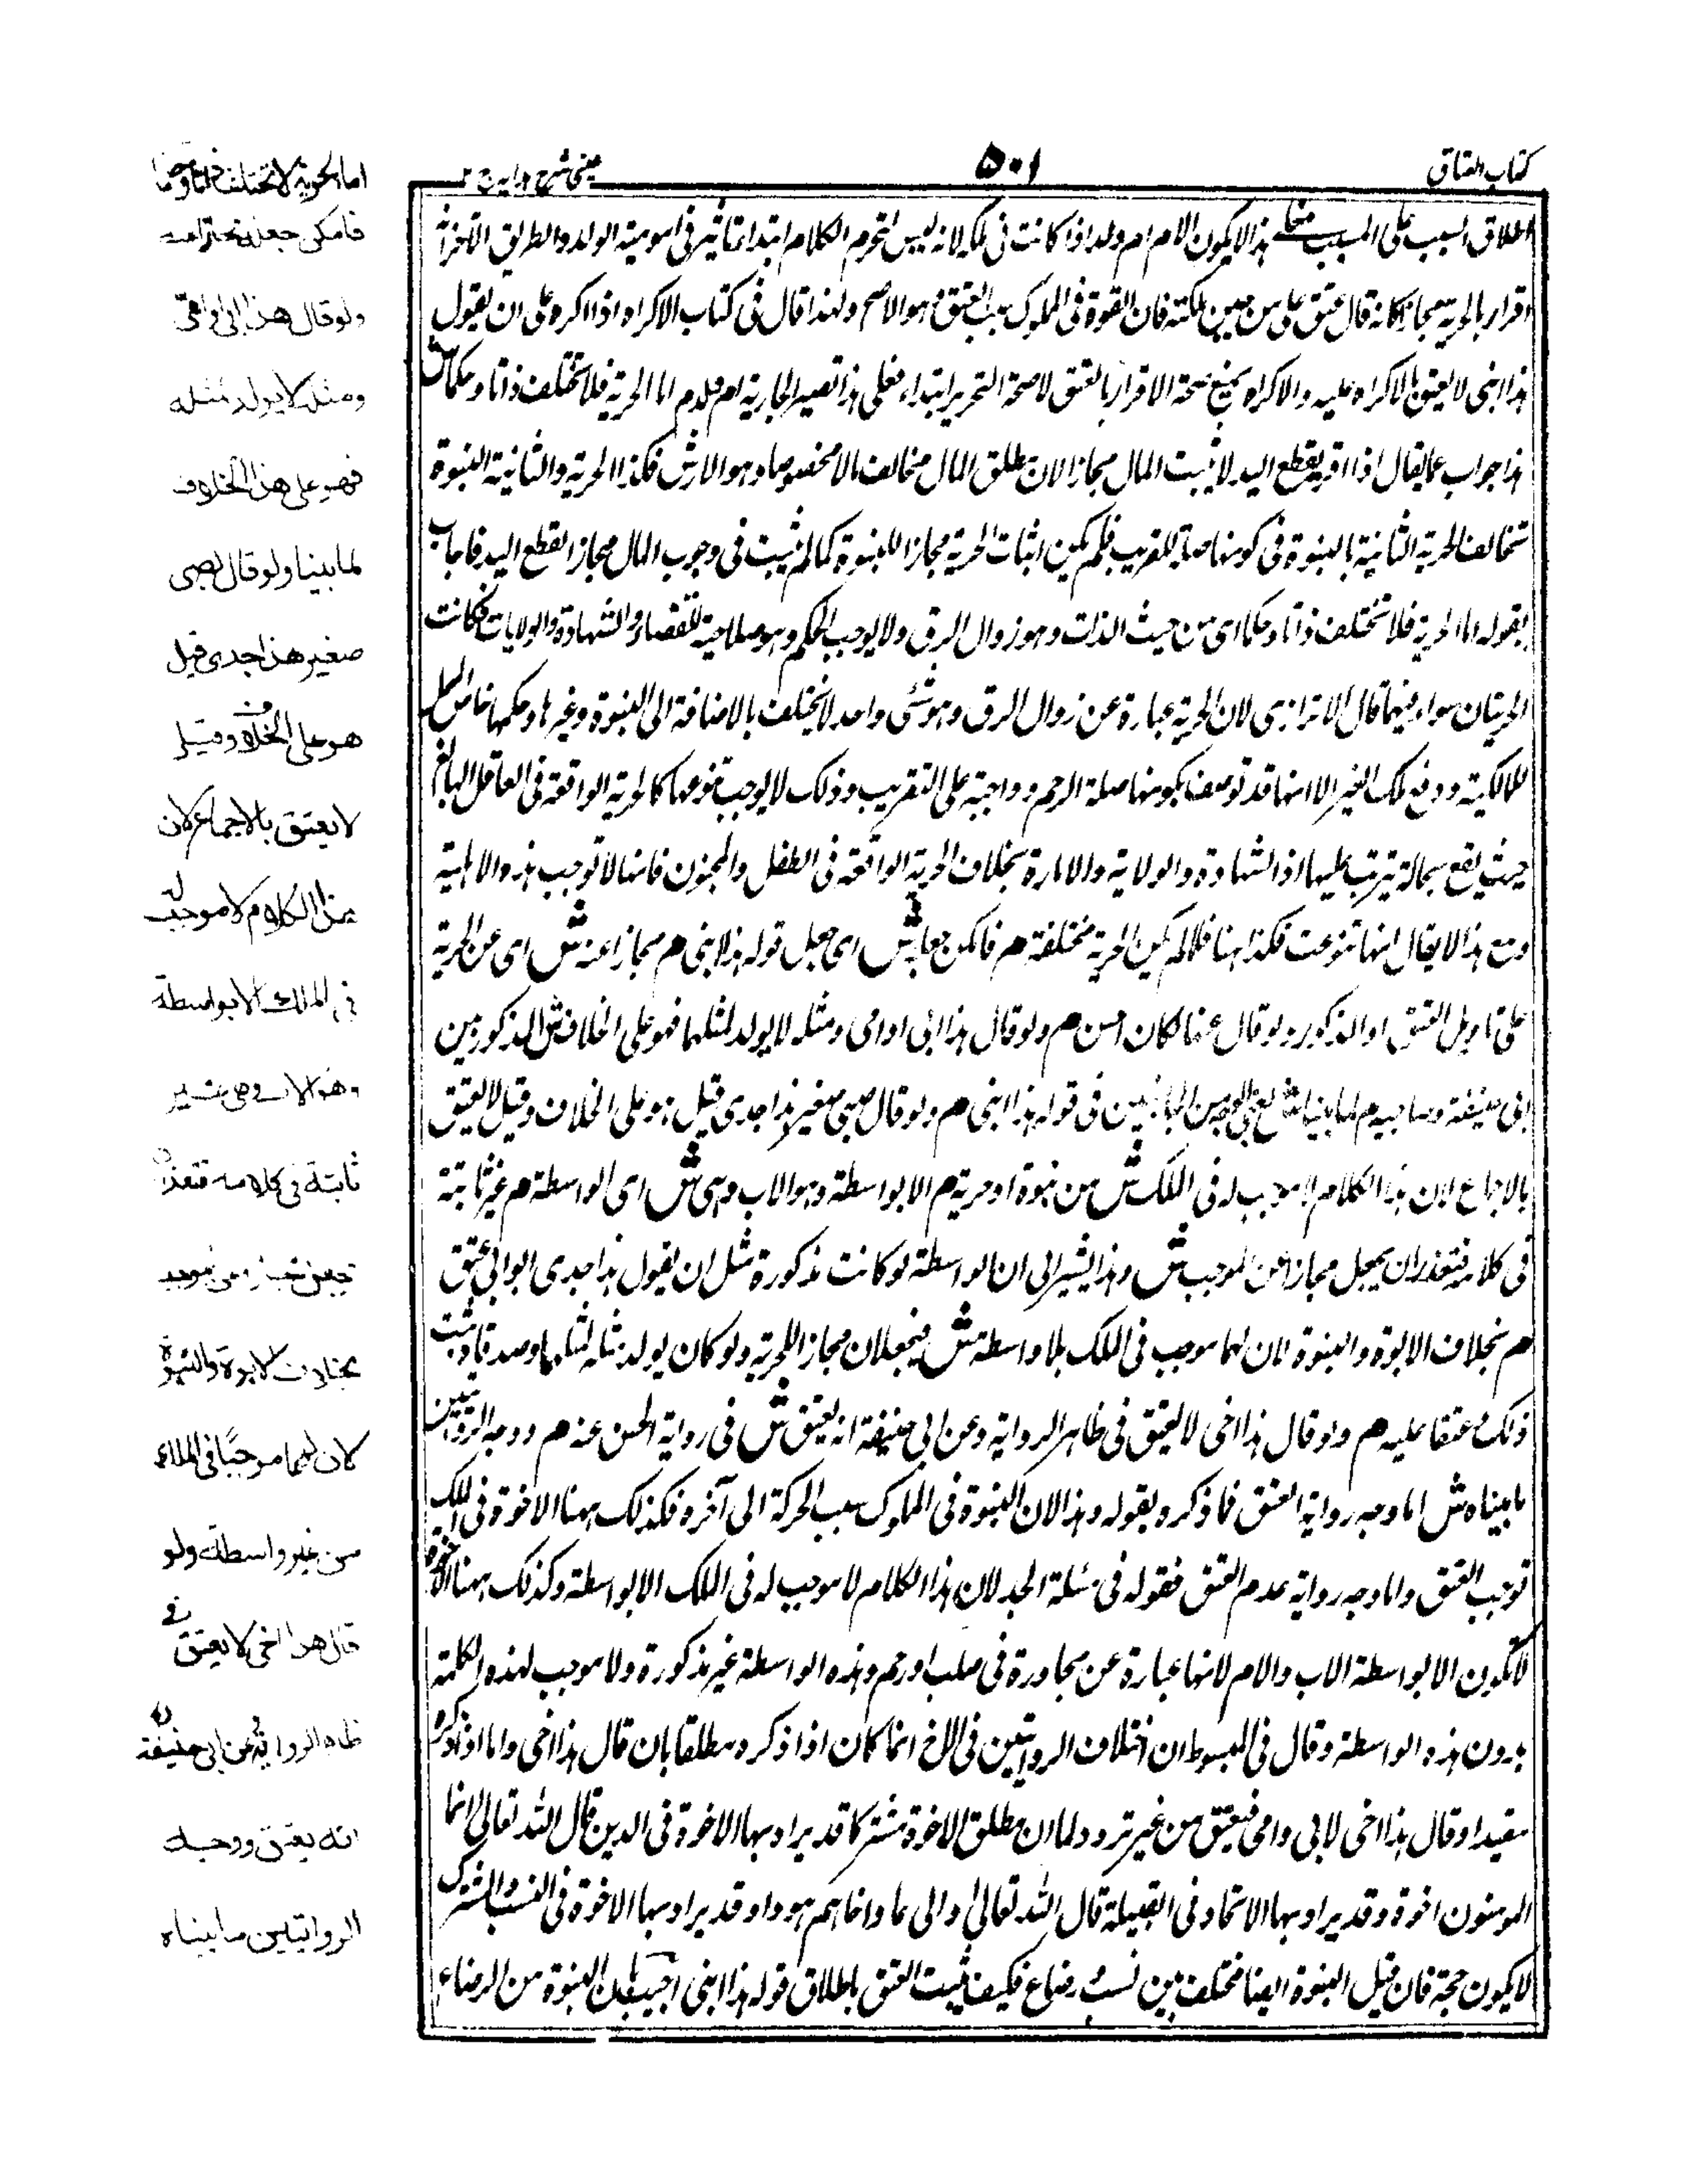 كتاب العتاق
٥٠١
عينى شرح هدايه ج ٢
اطلاق السبب على المسبب هذا لا يكون الام ام ولد اذا كانت فى ملكه لانه ليس لتحرم الكلام ابتداء تأثير فى امومية الولد والطريق الآخر انه
اقرار بالحرية مجازا كانه قال عتق على من حين ملكته فان القوة فى المملوك سبب العتق هو الاصح ولهذا قال فى كتاب الاكراه اذا اكره على ان يقول
هذا ابنى لا يعتق بالاكراه عليه والاكراه يمنع صحة الاقرار بالعتق لا صحة التحرير ابتداء فعلى هذا تصير الجارية ام ولد م اما الحرية فلا تختلف ذاتا وحكما ش
هذا جواب عما يقال اذا اقر بقطع اليد لا يثبت المال مجازا لان مطلق المال مخالف مالا مخصوصا وهو الارش فكذا الحرية والثانية البنوة
تخالف الحرية الثانية بالبنوة فى كونها صلة للقريب فلم يكن اثبات الحرية مجازا للبنوة كما لم يثبت فى وجوب المال مجازا لقطع اليد فاجاب
بقوله اما الحرية فلا تختلف ذاتا وحكما اى من حيث الذات وهو زوال الرق ولا يوجب الحكم وهو صلاحية للقضاء والشهادة والولايات فكانت
الحريتان سواء فيهما قال الاترازى لان الحرية عبارة عن زوال الرق وهو شئ واحد لا يختلف بالاضافة الى البنوة وغيرها وحكمها خاص
للمالكية ودفع ملك الغير الا انها قد توصف بكونها صلة الرحم وواجبة على القريب وذلك لا يوجب تنوعها كالحرية الواقعة فى العاقل البالغ
حيث يقع بحالة يترتب عليها اداء الشهادة والولاية والامارة بخلاف الحرية الواقعة فى الطفل والمجنون فانها لا توجب هذه الاهلية
ومع هذا لا يقال انها تنوعت فكذا هنا فلما لم تكن الحرية مختلفة م فامكن جعله ش اى جعل قوله هذا ابنى م مجازا عنه ش اى عن الحرية
على تاويل العتق او المذكور ولو قال عنها لكان احسن م ولو قال هذا ابى او امى ومثله لا يولد لمثلهما فهو على الخلاف ش المذكور بين
ابى حنيفة وصاحبيه م لما بينا ش من الجانبين فى قوله هذا ابنى م ولو قال لصبى صغير هذا جدى قيل هو على الخلاف وقيل لا يعتق
بالاجماع لان هذا الكلام لا موجب له فى الملك ش من بنوة او حرية م الا بواسطة وهو الاب وهى ش اى الواسطة م غير ثابتة
فى كلامه فتعذر ان يجعل مجازا عن الموجب ش وهذا يشير الى ان الواسطة لو كانت مذكورة مثل ان يقول هذا جدى ابو ابى عتق
م بخلاف الابوة والبنوة لان لهما موجب فى الملك بلا واسطة ش فيجعلان مجازا للحرية ولو كان يولد مثله لمثلهما وصدقا ثبت
ذلك وعتقا عليه م ولو قال هذا اخى لا يعتق فى ظاهر الرواية وعن ابى حنيفة انه يعتق ش فى رواية الحسن عنه م ووجه الروايتين
ما بيناه ش اما وجه رواية العتق فما ذكره بقوله وهذا لان البنوة فى المملوك سبب الحركة الى آخره فكذلك ههنا الاخوة فى الملك
توجب العتق واما وجه رواية عدم العتق فقوله فى مسئلة الجد لان هذا الكلام لا موجب له فى الملك الا بواسطة وكذلك ههنا الاخوة
لا تكون الا بواسطة الاب والام لانها عبارة عن مجاورة فى صلب او رحم وهذه الواسطة غير مذكورة ولا موجب لهذه الكلمة
بدون هذه الواسطة وقال فى المبسوط ان اختلاف الروايتين فى الاخ انما كان اذا ذكره مطلقا بان قال هذا اخى واما اذا ذكره
مقيدا وقال هذا اخى لابى وامى فيعتق من غير تردد لما ان مطلق الاخوة مشترك قد يراد بها الاخوة فى الدين قال الله تعالى انما
المومنون اخوة وقد يراد بها الاتحاد فى القبيلة قال الله تعالى والى عاد اخاهم هودا وقد يراد بها الاخوة فى النسب والمشترك
لا يكون حجة فان قيل البنوة ايضا مختلف بين نسب ورضاع فكيف يثبت العتق باطلاق قوله هذا ابنى اجيب بان البنوة من الرضاع
اما الحرية لا تختلف ذاتا وحكما
فامكن جعله مجازا عنه
ولو قال هذا ابى او امى
ومثله لا يولد لمثله
فهو على هذا الخلاف
لما بينا ولو قال لصبى
صغير هذا جدى قيل
هو على الخلاف وقيل
لا يعتق بالاجماع لان
هذا الكلام لا موجب له
فى الملك الا بواسطة
وهو الاب وهى غير
ثابتة فى كلامه فتعذر
ان يجعل مجازا عن الموجب
بخلاف الابوة والبنوة
لان لهما موجبا فى الملك
من غير واسطة ولو
قال هذا اخى لا يعتق فى
ظاهر الرواية وعن ابى حنيفة
انه يعتق ووجه
الروايتين ما بيناه